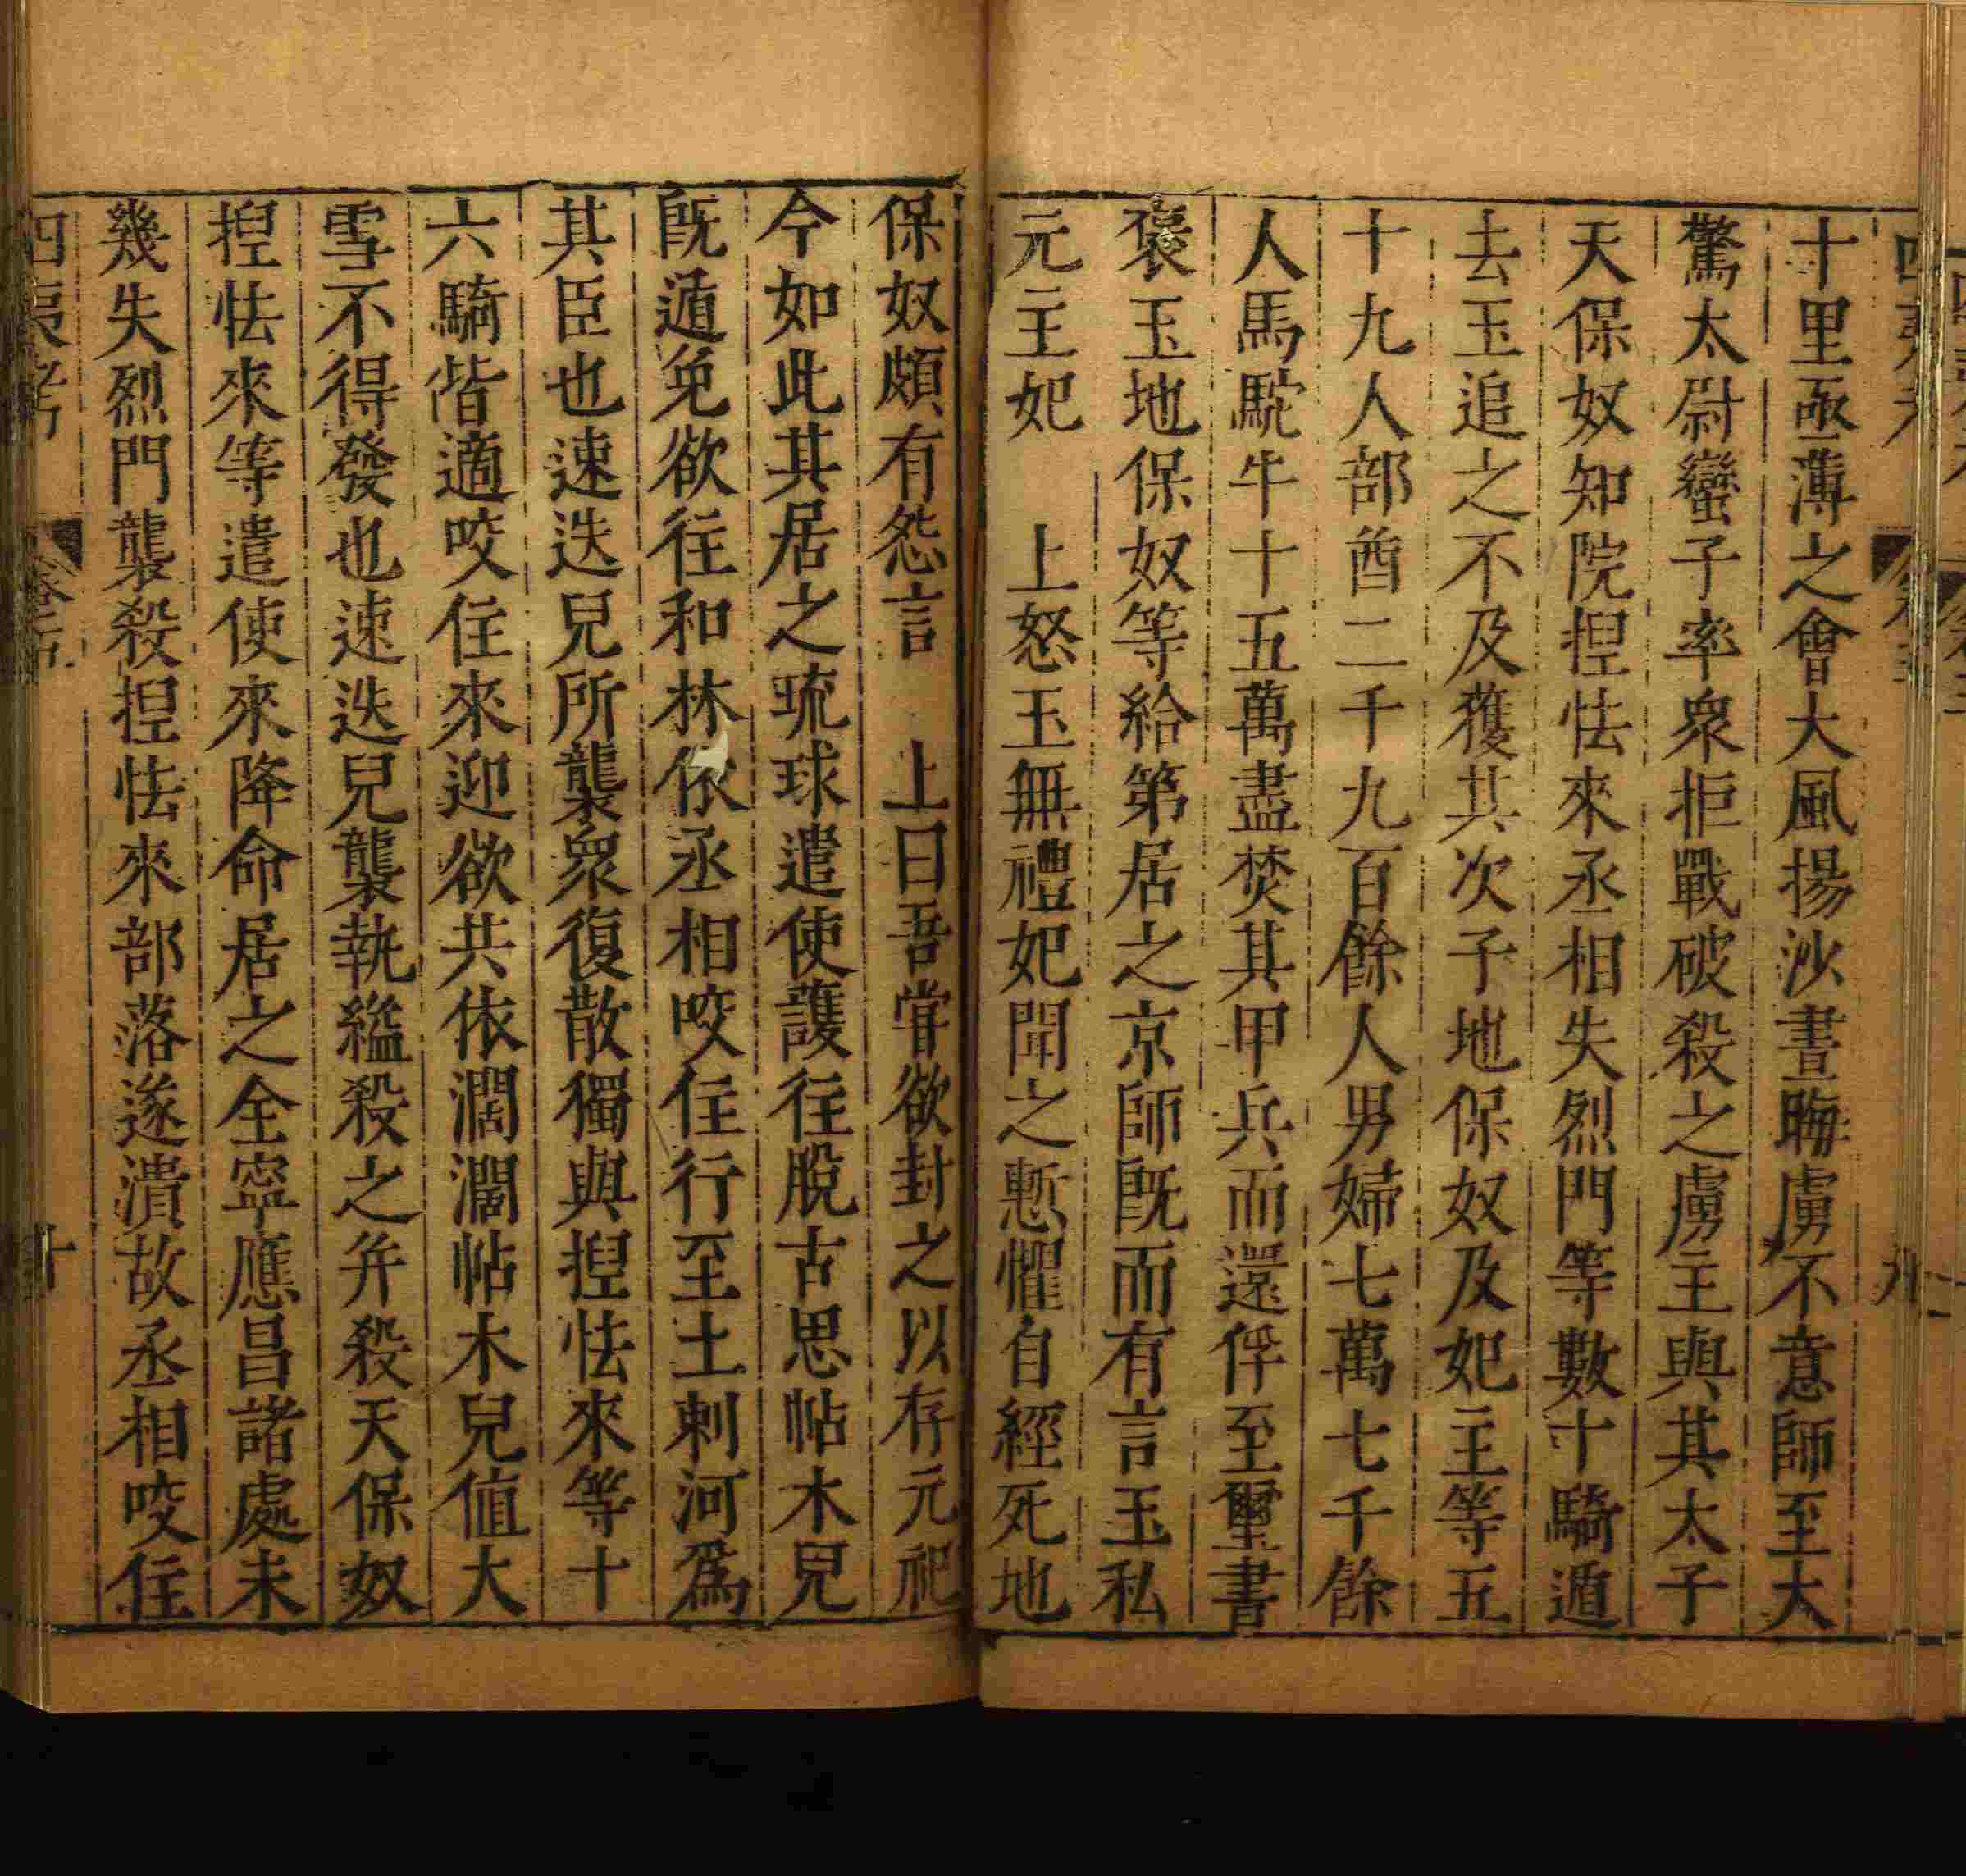 十里亟薄之會大風揚沙晝晦虜不意師至大
驚太尉蠻子率衆拒戰破殺之虜主與其太子
天保奴知院揑怯來丞相失烈門等數十騎遁
去玉追之不及獲其次子地保奴及妃主等五
十九人部酋二千九百餘人男婦七萬七千餘
人馬駝牛十五萬盡焚其甲兵而還俘至璽書
褒玉地保奴等給第居之京師旣而有言玉私
元主妃　上怒玉無禮妃聞之慙懼自經死地
保奴頗有怨言　上曰吾嘗欲封之以存元祀
今如此其居之琉球遣使護往脫古思帖木兒
旣遁免欲往和林依丞相咬住行至土剌河爲
其臣也速迭兒所襲衆復散獨與揑怯來等十
六騎偕適咬住來迎欲共依濶濶帖木兒值大
雪不得發也速迭兒襲執縊殺之并殺天保奴
揑怯來等遣使來降命居之全寧應昌諸處未
幾失烈門襲殺揑怯來部落遂潰故丞相咬住
四夷考
十